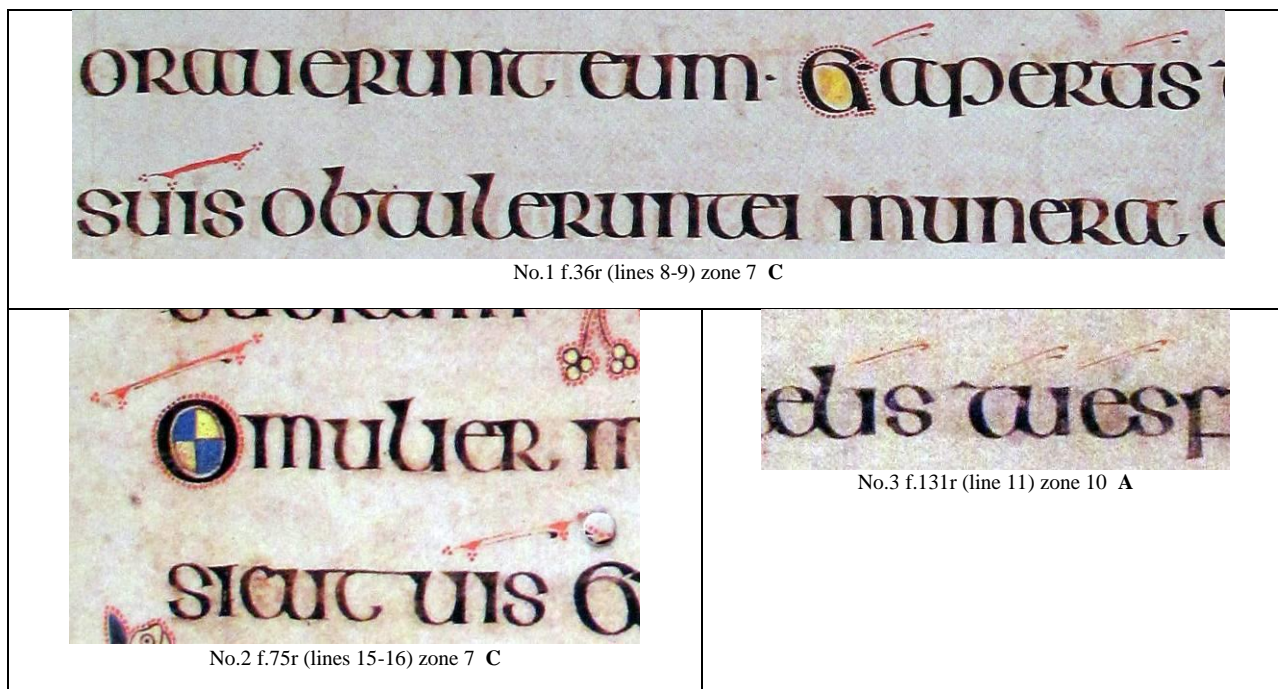 orauerunt eum· Et apertis
suis obtulerunt ei munera
No.1 f.36r (lines 8-9) zone 7 C
O mulier m
sicut uis Et
No.2 f.75r (lines 15-16) zone 7 C
elis tu es f
No.3 f.131r (line 11) zone 10 A